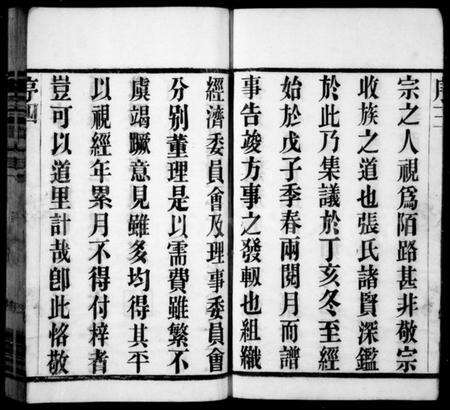 宗之人視爲陌路甚非敬宗
收族之道也張氏諸賢深鑑
於此乃集議於丁亥冬至經
始於戊子季春兩閱月而譜
事告竣方事之發軔也組織
經濟委員會及理事委員會
分别董理是以需費雖繁不
虞竭蹶意見雖多均得其平
以視經年累月不得付梓者
豈可以道里計哉卽此恪敬
序四